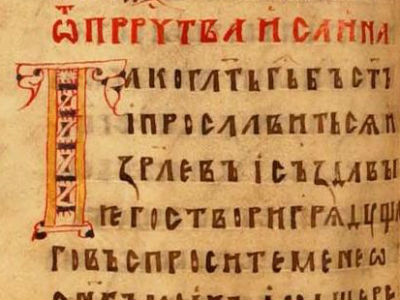 Ѿ ПРРУТВА ИСАИНА
ТАКО ГЛТЬ ГЬ БЪ СТЪІ
І ПРОСЛАВИТЬ СѦ И
ꙀРЛЕВЪ І СЪꙀДАВЫ
І ЕГО СТВОРИ ГРѦДУЩА
ГО ВЪСПРОСИТЕ МЕНЕ Ѡ